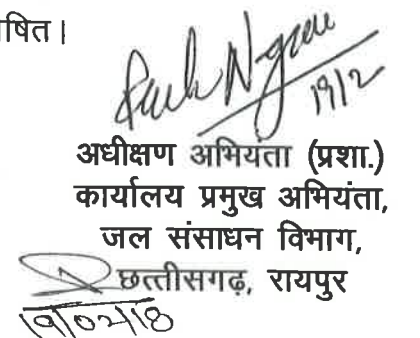 षित।
19/2
अधीक्षण अभियंता (प्रशा.)
कार्यालय प्रमुख अभियंता,
जल संसाधन विभाग,
छत्तीसगढ़, रायपुर
19/02/18